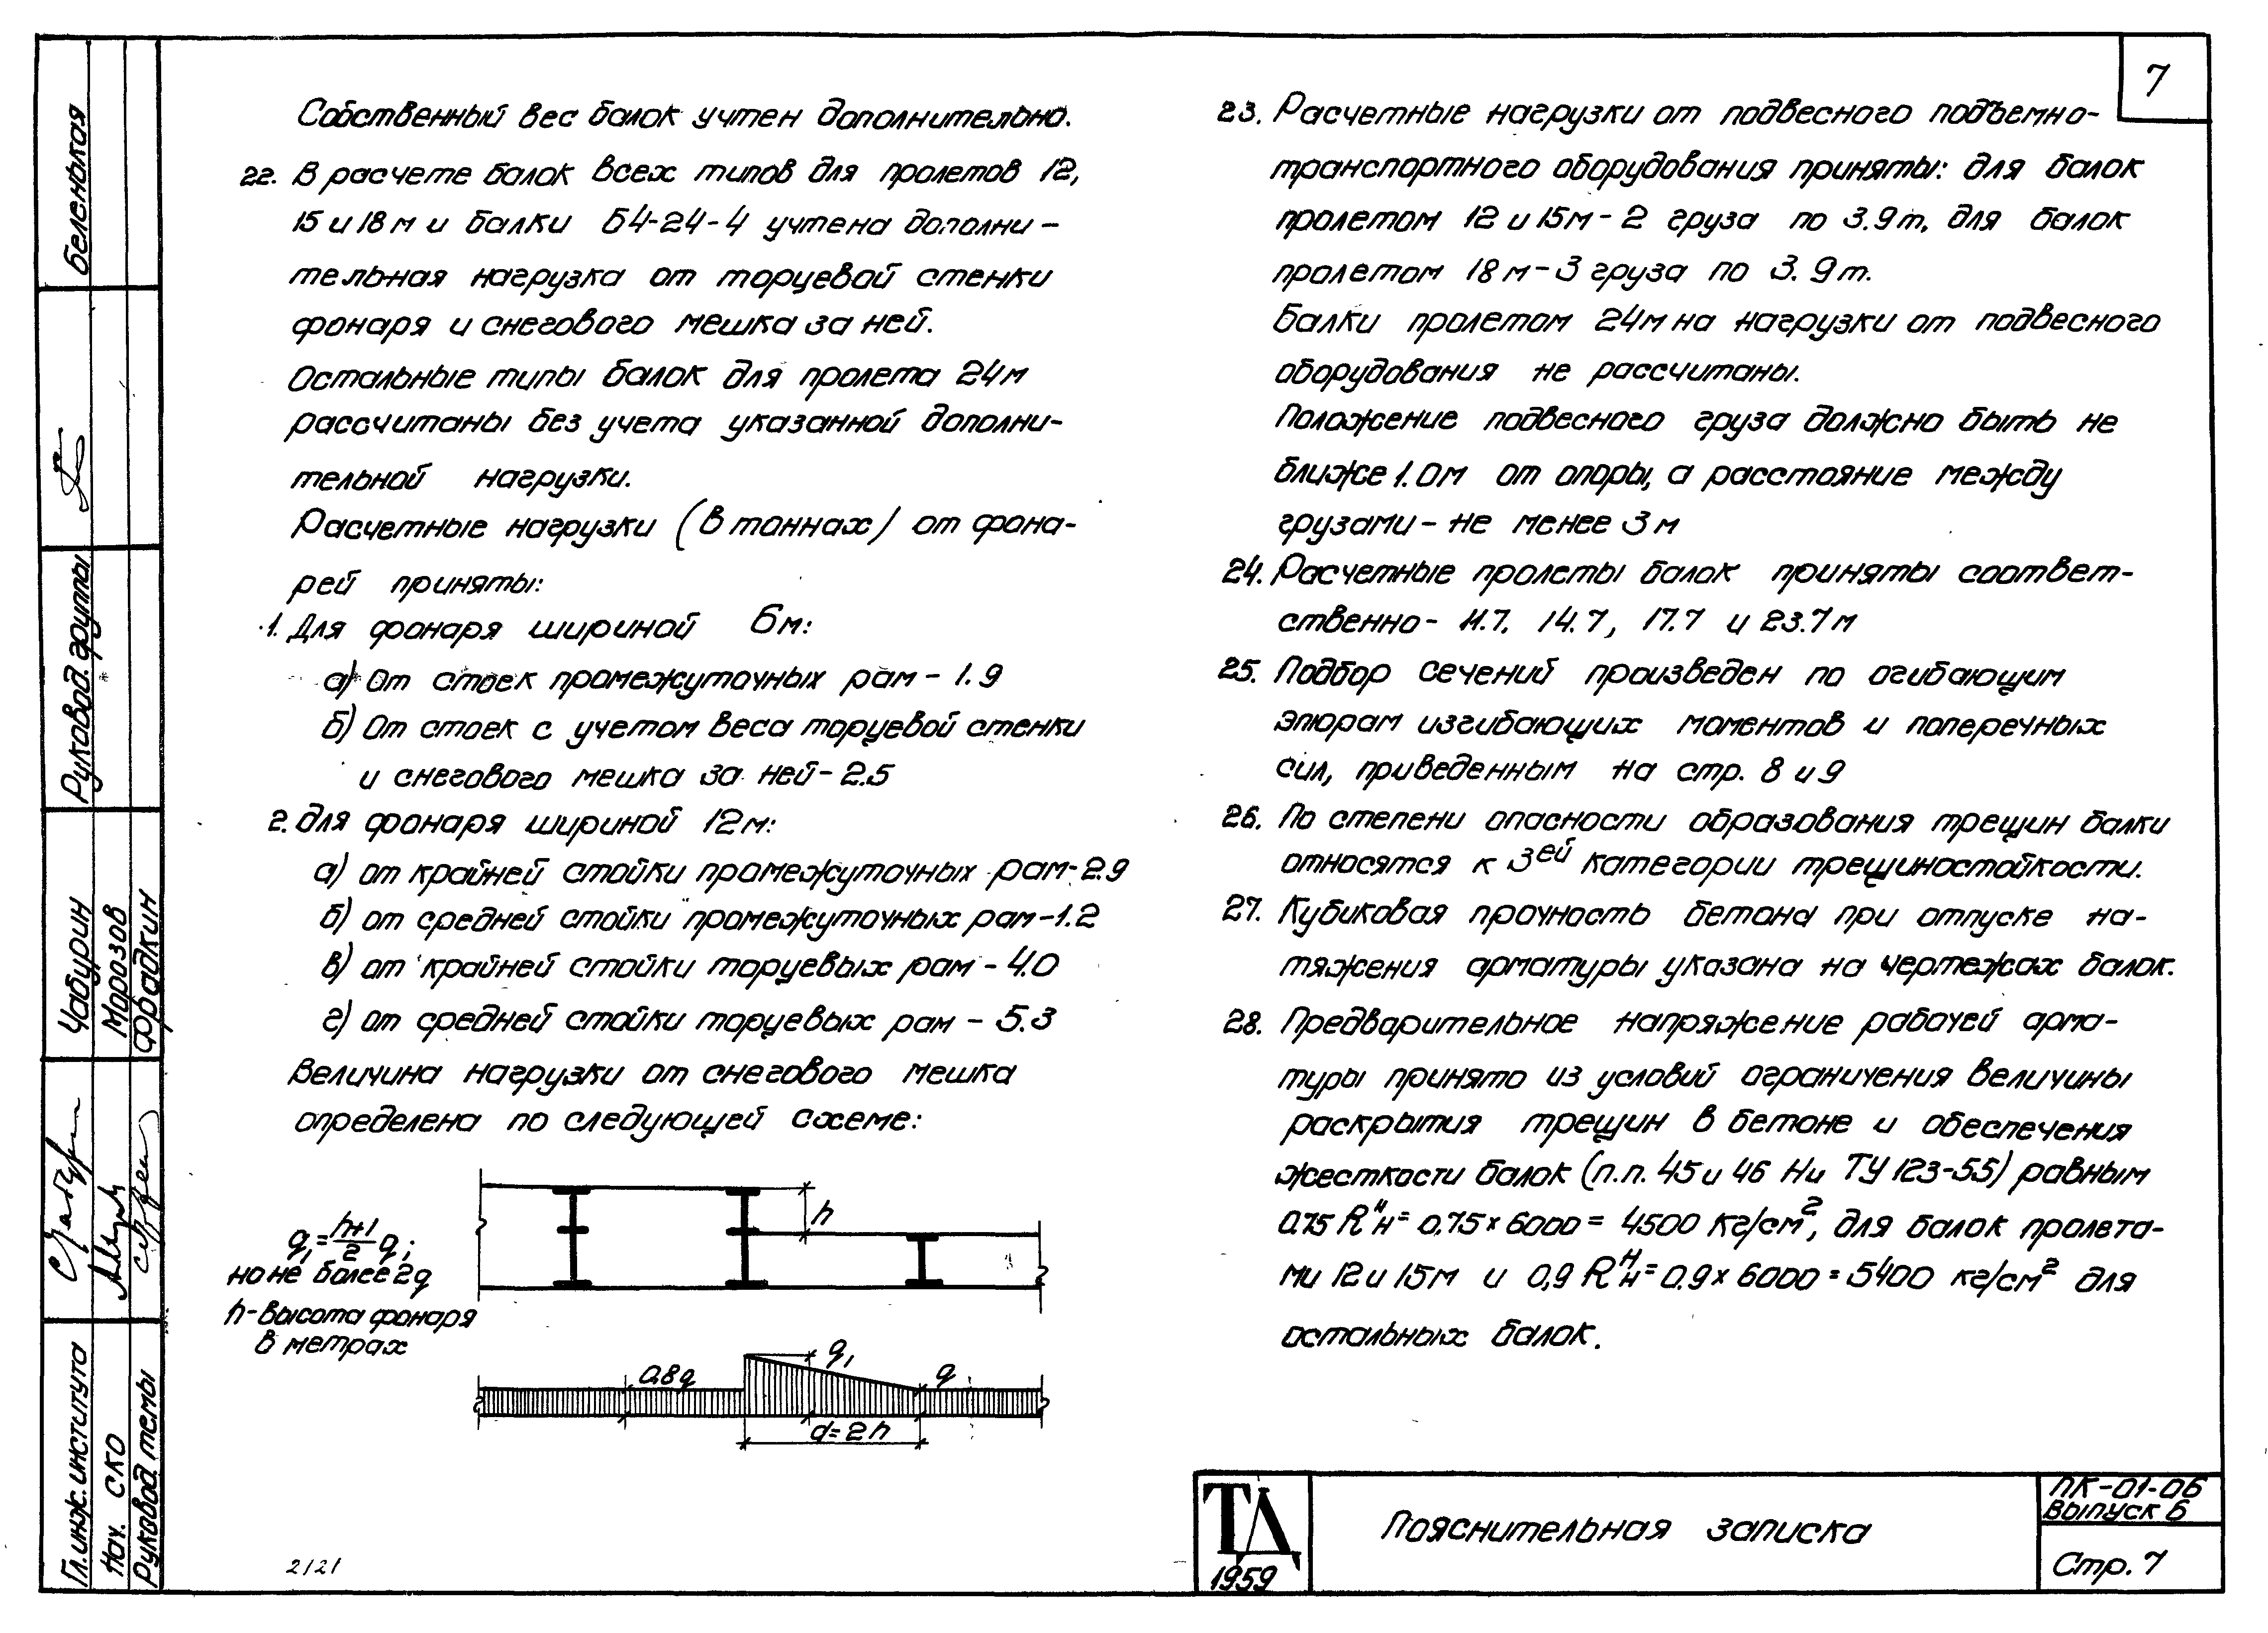 7
Собственный вес балок учтен дополнительно.
22. В расчете балок всех типов для пролетов 12,
15 и 18 м и балки Б4-24-4 учтена дополни-
тельная нагрузка от торцевой стенки
фонаря и снегового мешка за ней.
Остальные типы балок для пролета 24м
рассчитаны без учета указанной дополни-
тельной нагрузки.
Расчетные нагрузки (в тоннах) от фона-
рей приняты:
1. Для фонаря шириной 6м:
а) От стоек промежуточных рам - 1.9
б) От стоек с учетом веса торцевой стенки
и снегового мешка за ней - 2.5
2. Для фонаря шириной 12м:
а) от крайней стойки промежуточных рам - 2.9
б) от средней стойки промежуточных рам - 1.2
в) от крайней стойки торцевых рам - 4.0
г) от средней стойки торцевых рам - 5.3
Величина нагрузки от снегового мешка
определена по следующей схеме:
q₁ = (h+1)/2 q;
но не более 2q
h-высота фонаря
в метрах
h
0,8q
q₁
q
d=2h
2121
23. Расчетные нагрузки от подвесного подъемно-
транспортного оборудования приняты: для балок
пролетом 12 и 15м - 2 груза по 3.9т, для балок
пролетом 18м - 3 груза по 3.9т.
Балки пролетом 24м на нагрузки от подвесного
оборудования не рассчитаны.
Положение подвесного груза должно быть не
ближе 1.0м от опоры, а расстояние между
грузами - не менее 3м
24. Расчетные пролеты балок приняты соответ-
ственно - 11.7. 14.7, 17.7 и 23.7м
25. Подбор сечений произведен по огибающим
эпюрам изгибающих моментов и поперечных
сил, приведенным на стр. 8 и 9
26. По степени опасности образования трещин балки
относятся к 3ей категории трещиностойкости.
27. Кубиковая прочность бетона при отпуске на-
тяжения арматуры указана на чертежах балок.
28. Предварительное напряжение рабочей арма-
туры принято из условий ограничения величины
раскрытия трещин в бетоне и обеспечения
жесткости балок (п.п. 45 и 46 Н и ТУ 123-55) равным
0.75 Rᴴн = 0,75 × 6000 = 4500 кг/см², для балок пролета-
ми 12 и 15м и 0,9 Rᴴн = 0.9 × 6000 = 5400 кг/см² для
остальных балок.
ТД
1959
Пояснительная записка
ПК-01-06
Выпуск 6
Стр. 7
Гл. инж. института
Нач. СКО
Руковод. темы
Чабурин
Морозов
Фрадкин
Руковод. группы
Беленькая